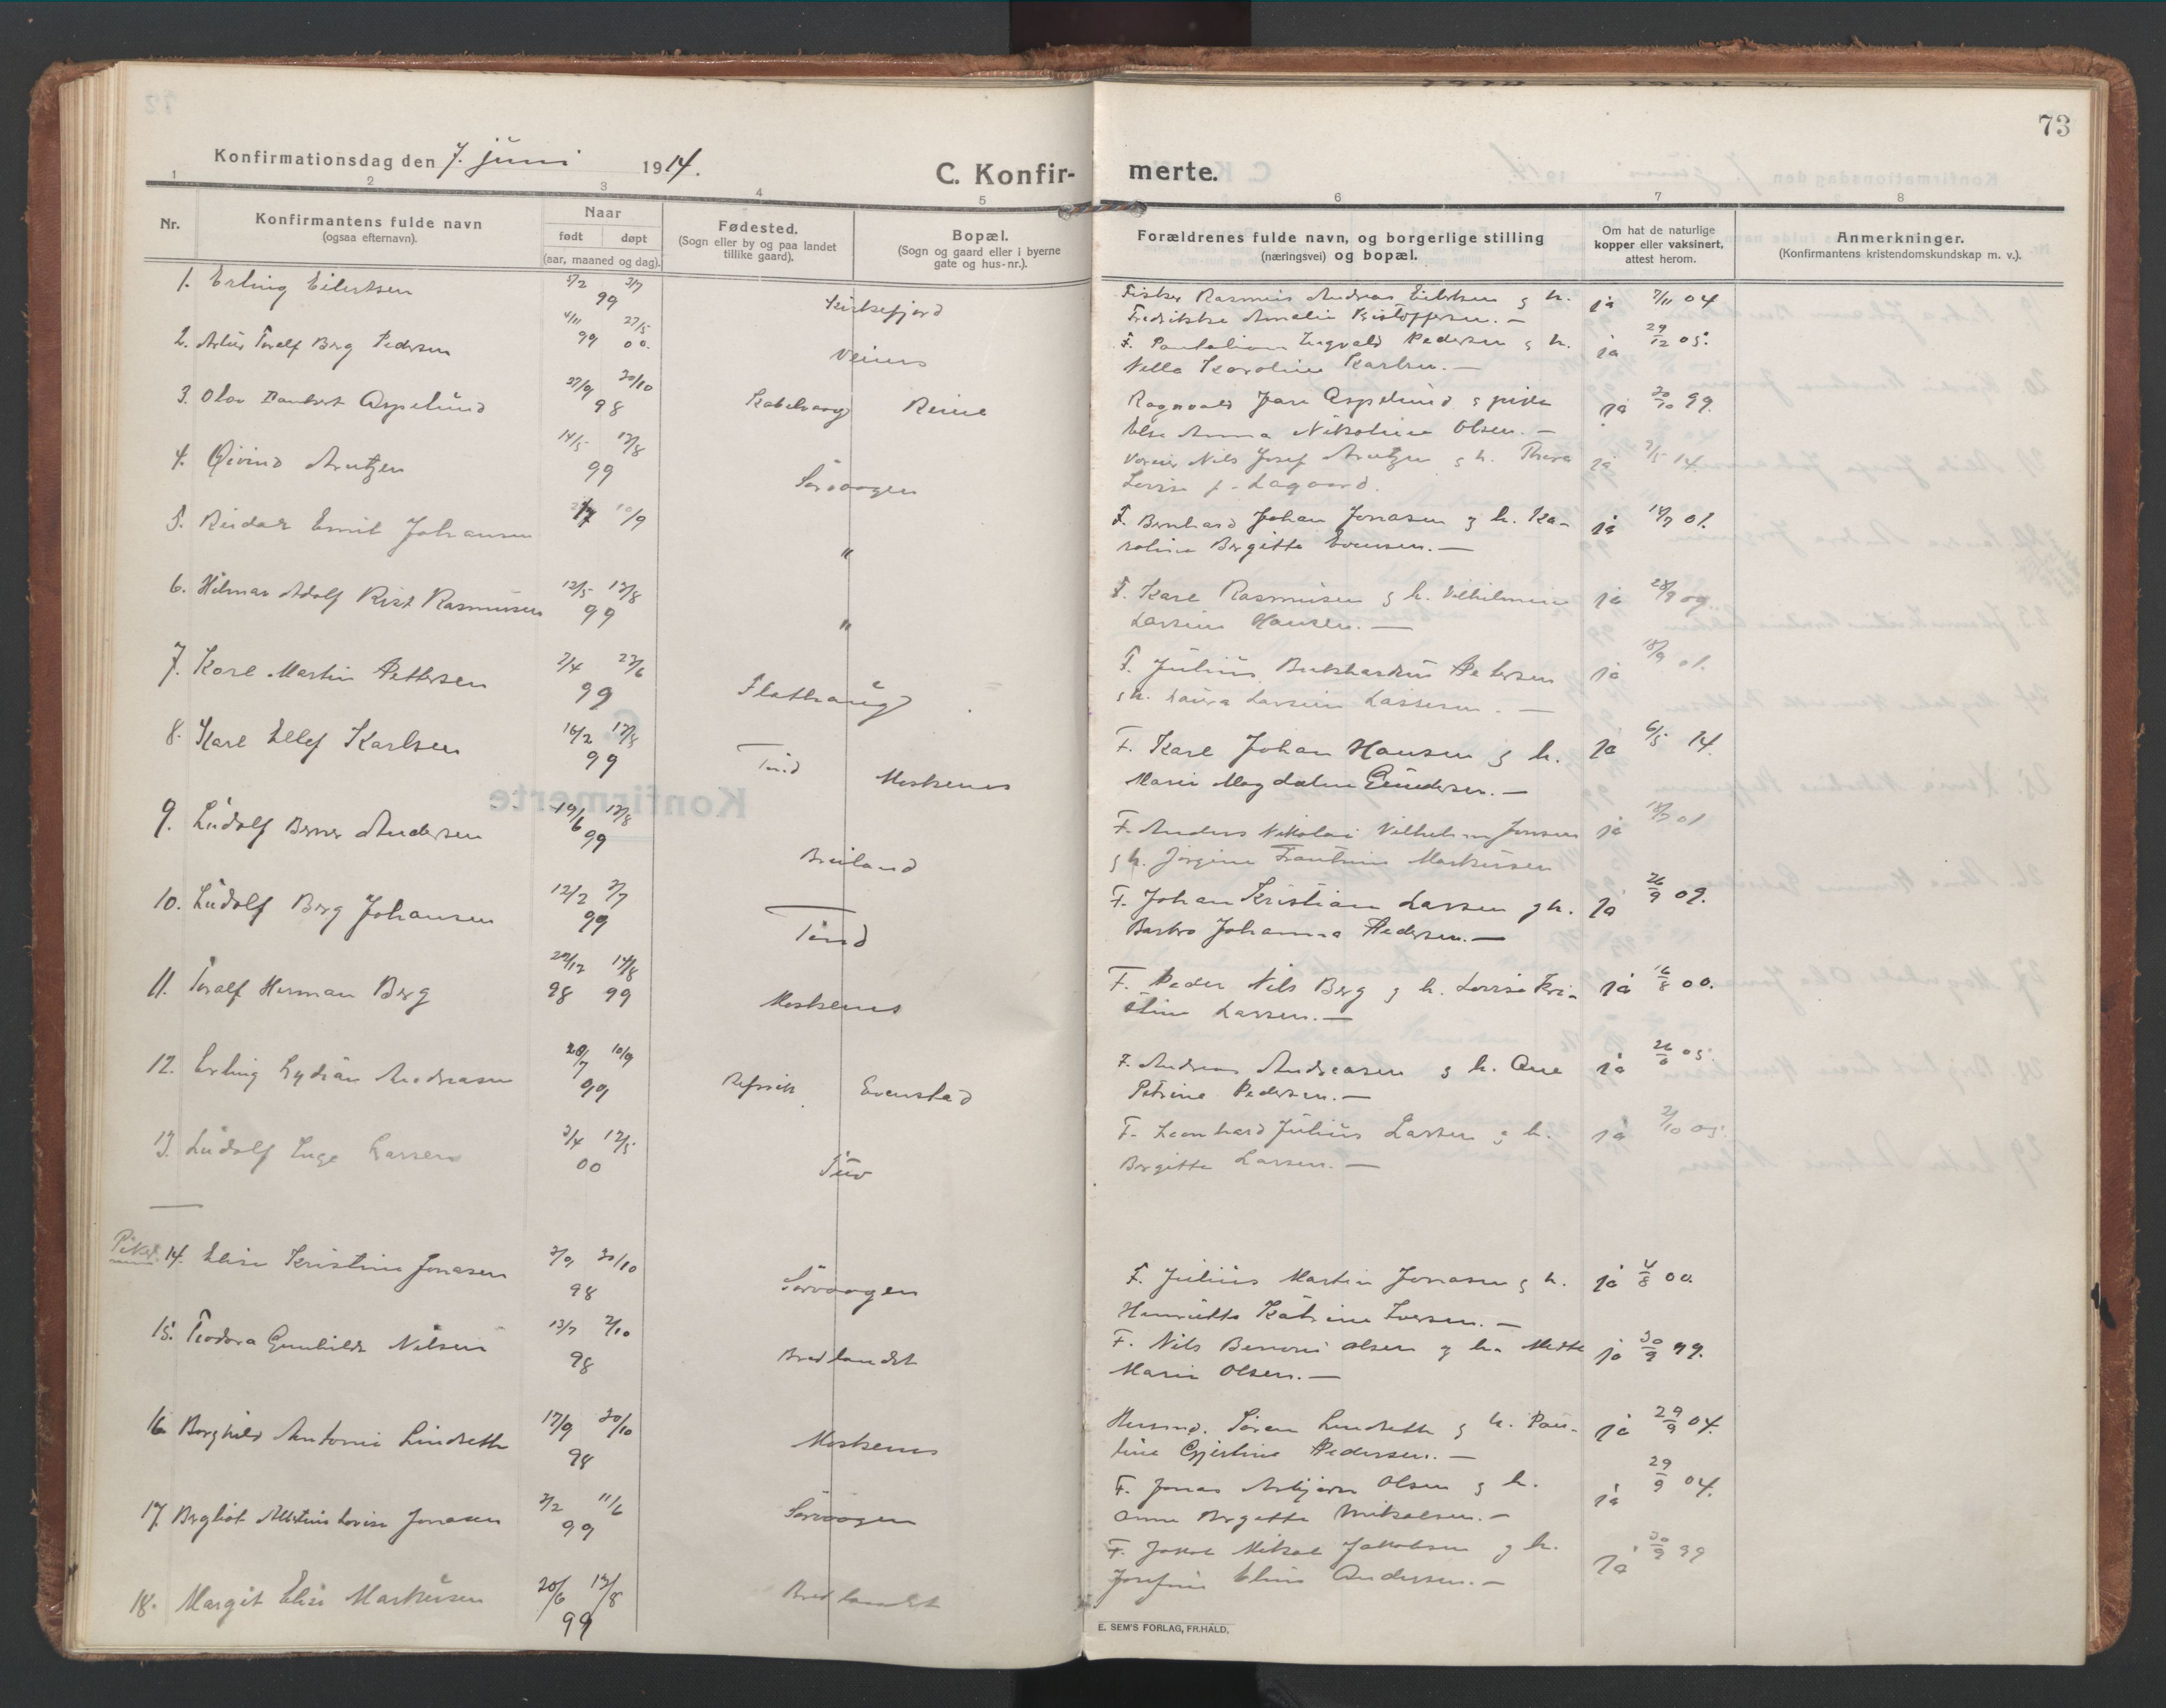 Konfirmationsdag den 7. juni 1914.
C. Konfir-
merte.
73
1 2 3 4 5 6 7 8
Nr.
Konfirmantens fulde navn
(ogsaa efternavn).
Naar
født døpt
(aar, maaned og dag).
Fødested.
(Sogn eller by og paa landet
tillike gaard).
Bopæl.
(Sogn og gaard eller i byerne
gate og hus-nr.).
Forældrenes fulde navn, og borgerlige stilling
(næringsvei) og bopæl.
Om hat de naturlige
kopper eller vaksinert,
attest herom.
Anmerkninger.
(Konfirmantens kristendomskundskap m. v.).
1. Erling Eilertsen 5/2 3/7 99 Kirkefjord
Fisker Rasmus Andreas Eilertsen g h.
Fredrikke Amalie Kristoffersen. — ja 7/11 04
2. Toralf Berg Pedersen 4/11 99 27/5 00.
F. Ingvald Pedersen g h.
Karoline Karlsen. — ja 29/12 05.
3. Olav Aspelund 27/9 30/10 98 Kabelvaag Reine
Ragnvald Aspelund g pike
Else Anna Nikoline Olsen. — ja 30/10 99.
4. Øivind Arntzen 14/5 13/8 99 Sørvaagen
Nils Josef Arntzen g h. Thora
Lovise f. Lagaard. ja 14.
5. Reidar Emil Johansen 10/9 "
F. Bernhard Johan Jonasen g h. Ka-
roline Bergitte Evensen. — ja 01.
6. Hilmar Adolf Rist Rasmussen 12/5 13/8 99 "
F. Karl Rasmussen g h. Vilhelmine
Larsine Hansen. — ja 28/9 09
7. Karl Martin Pettersen 2/4 23/6 99 Flathaug
F. Julius Pettersen
g h. Laura Larsine — ja 18/9 01.
8. Karl Ellef Karlsen 16/2 13/8 99 Tind Moskenes
F. Karl Johan Hansen g h.
Marie Magdalene Gundersen. — ja 6/5 14.
9. Ludolf Berner Andersen 19/6 13/8 99 Breiland
F. Anders Nikolai Vilhelm Jensen
g h. Jørgine Markussen ja 01
10. Ludolf Berg Johansen 12/2 3/7 99 Tind
F. Johan Kristian Larsen g h.
Barbro Johanna Pedersen. — ja 26/9 09.
11. Toralf Herman Berg 98 14/8 99 Moskenes
F. Peder Nils Berg g h. Lovise Kri-
stine Larsen. — ja 16/8 00.
12. Erling Lydian Andreasen 28/7 10/9 99 Refsvik Evenstad
F. Andreas Andreasen g h. Ane
Petrine Pedersen. — ja 05.
13. Ludolf Inge Larsen 3/4 12/5 00 Tuv
F. Leonhard Julius Larsen g h.
Bergitte Larsen. — ja 2/10 05.
Piker.
14. Elise Kristine Jonasen 3/9 30/10 98 Sørvaagen
F. Julius Martin Jonasen g h.
Henriette Katrine Iversen. — ja 4/8 00.
15. Teodora Gunhilde Nilsen 13/7 2/10 98 Bredlandet
F. Nils Benoni Olsen g h. Mette
Marie Olsen. — ja 30/9 99.
16. Borghild Antonie Lindseth 17/9 30/10 98 Moskenes
Husmd. Søren Lindseth g h. Pau-
line Gjertine Pedersen. — ja 29/9 04.
17. Bergliot Albertine Lovise Jonasen 3/2 11/6 99 Sørvaagen
F. Jonas Asbjørn Olsen g h.
Anne Bergitte Mikalsen. — ja 29/9 04.
18. Margit Elise Markussen 20/6 13/8 99 Bredlandet
F. Jakob Mikal Jakobsen g h.
Josefine Eline Andersen. — ja 30/9 99
E. SEM'S FORLAG, FR.HALD.